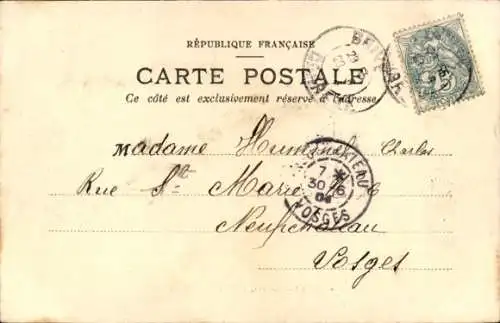 RÉPUBLIQUE FRANÇAISE
CARTE POSTALE
Ce côté est exclusivement réservé à l'adresse
Madame Charles
Rue Ste Marie
Neufchâteau
Vosges
7
30 6
04
VOSGES